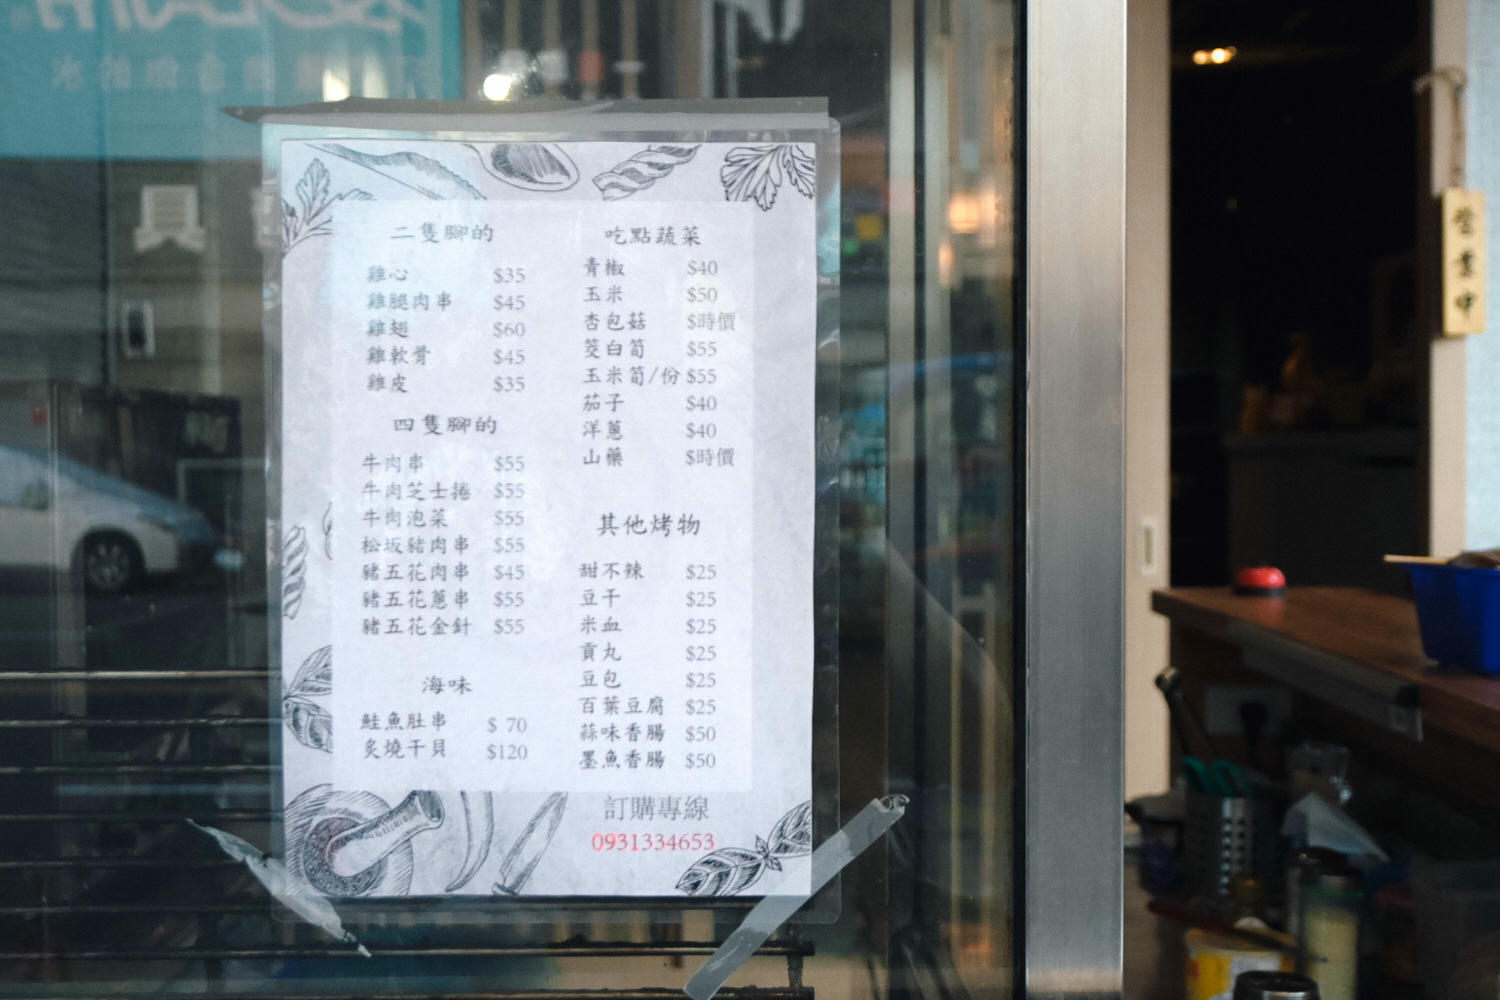 二隻腳的
雞心 $35
雞腿肉串 $45
雞翅 $60
雞軟骨 $45
雞皮 $35
四隻腳的
牛肉串 $55
牛肉芝士捲 $55
牛肉泡菜 $55
松坂豬肉串 $55
豬五花肉串 $45
豬五花蔥串 $55
豬五花金針 $55
海味
鮭魚肚串 $ 70
炙燒干貝 $120
吃點蔬菜
青椒 $40
玉米 $50
杏包菇 $時價
筊白筍 $55
玉米筍/份 $55
茄子 $40
洋蔥 $40
山藥 $時價
其他烤物
甜不辣 $25
豆干 $25
米血 $25
貢丸 $25
豆包 $25
百葉豆腐 $25
蒜味香腸 $50
墨魚香腸 $50
訂購專線
0931334653
營業中